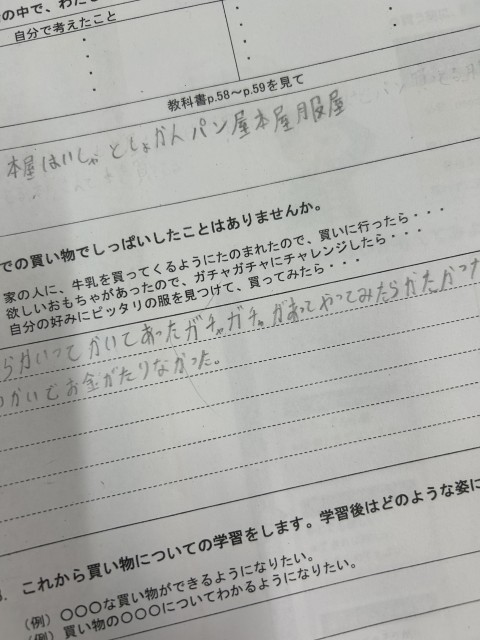 の中で、わた
自分で考えたこと
・ ・
・ ・
・ ・
・ ・
教科書p.58～p.59を見て
本屋はいしゃ としょかんパン屋本屋服屋
での買い物でしっぱいしたことはありませんか。
家の人に、牛乳を買ってくるようにたのまれたので、買いに行ったら・・・
欲しいおもちゃがあったので、ガチャガチャにチャレンジしたら・・・
自分の好みにピッタリの服を見つけて、買ってみたら・・・
らかいってかいてあったガチャガチャがあってやってみたらかたかった
つかいでお金がたりなかった。
これから買い物についての学習をします。学習後はどのような姿に
（例）〇〇〇な買い物ができるようになりたい。
（例）買い物の〇〇〇についてわかるようになりたい。